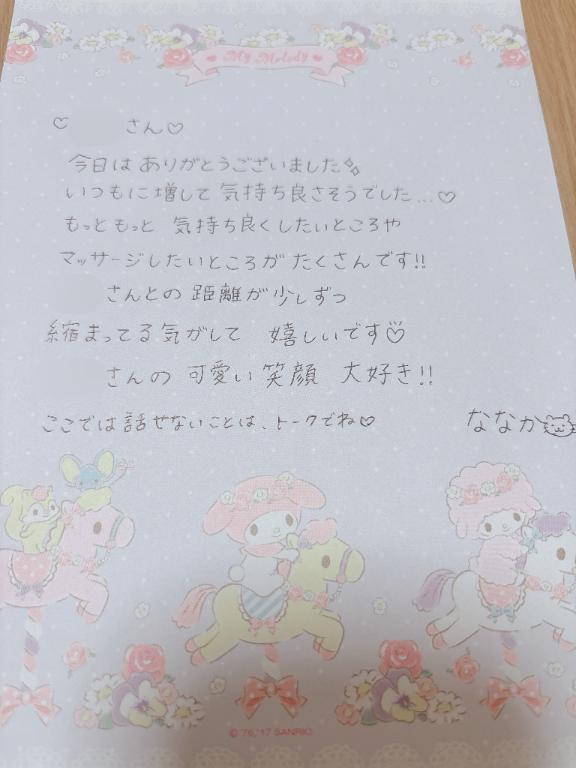 My Melody
♡ さん♡
今日は ありがとうございました✨
いつもに増して 気持ち良さそうでした...♡
もっともっと 気持ち良くしたいところや
マッサージしたいところが たくさんです!!
さんとの 距離が 少しずつ
縮まってる気がして 嬉しいです♡
さんの 可愛い 笑顔 大好き!!
ここでは話せないことは、トークでね♡ ななか
© '76,'17 SANRIO